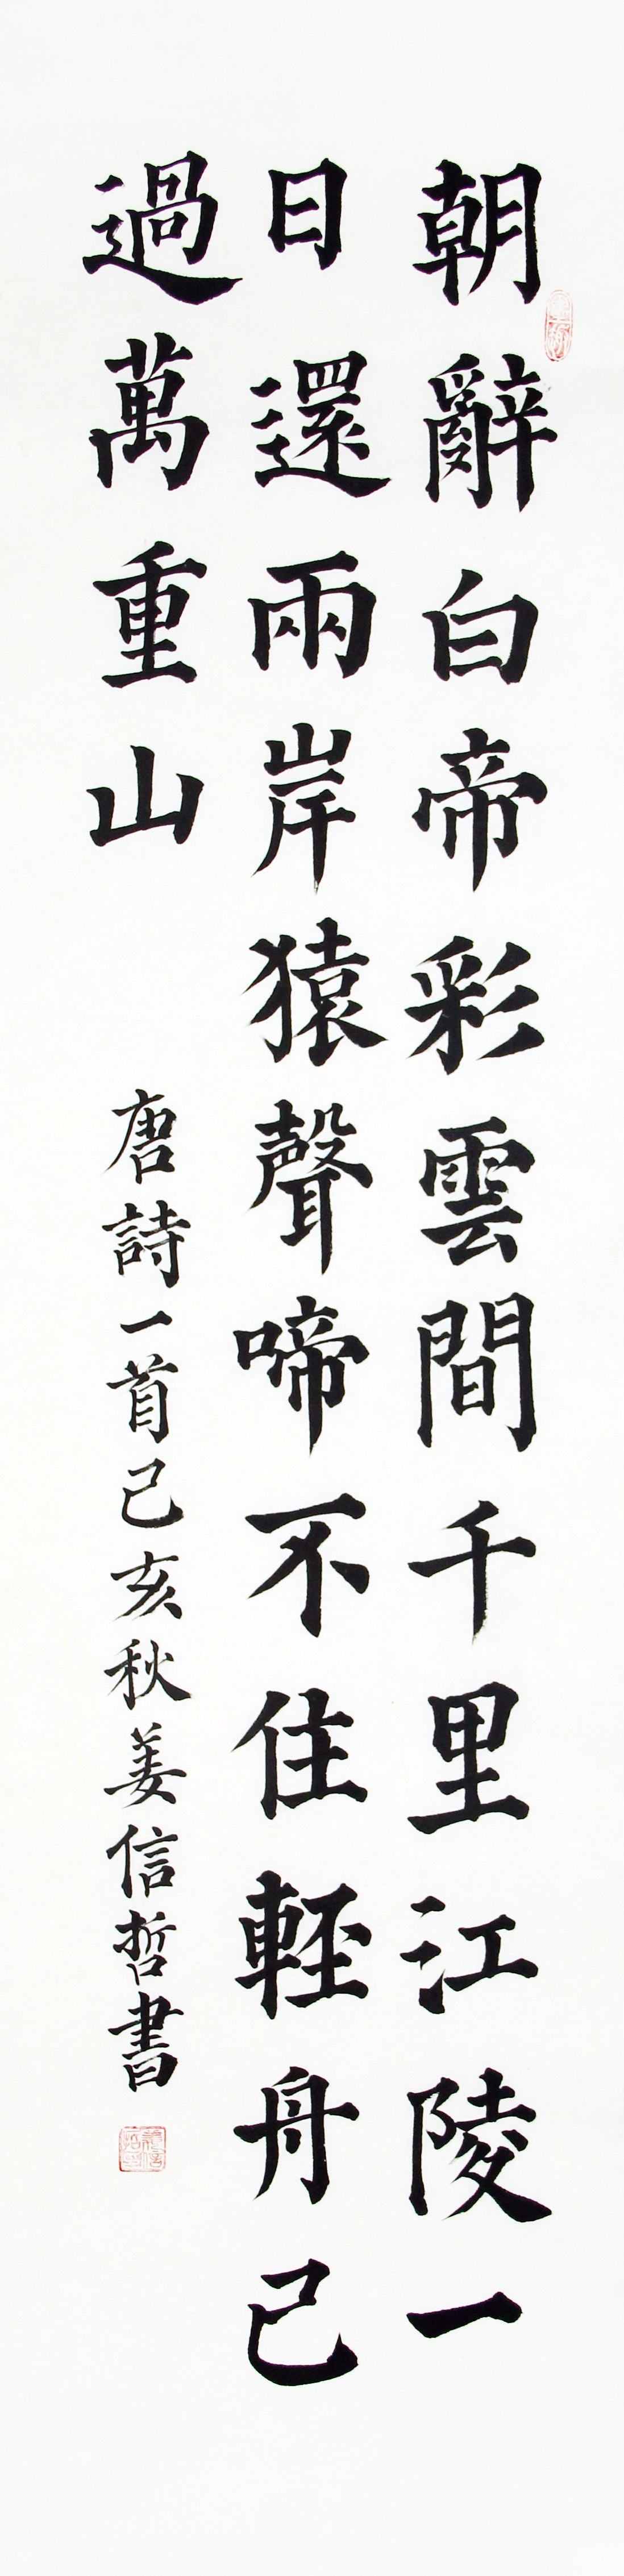 朝辭白帝彩雲間千里江陵一
日還兩岸猿聲啼不住輕舟已
過萬重山
唐詩一首己亥秋姜信哲書